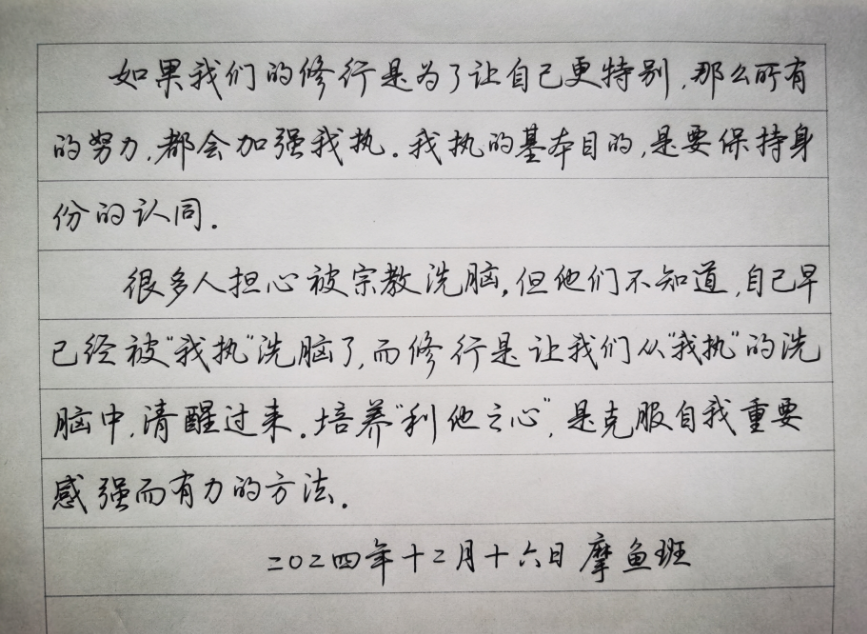 如果我们的修行是为了让自己更特别,那么所有
的努力,都会加强我执.我执的基本目的,是要保持身
份的认同.
很多人担心被宗教洗脑,但他们不知道,自己早
已经被"我执"洗脑了,而修行是让我们从"我执"的洗
脑中,清醒过来.培养"利他之心",是克服自我重要
感强而有力的方法.
二〇二四年十二月十六日 摩鱼班